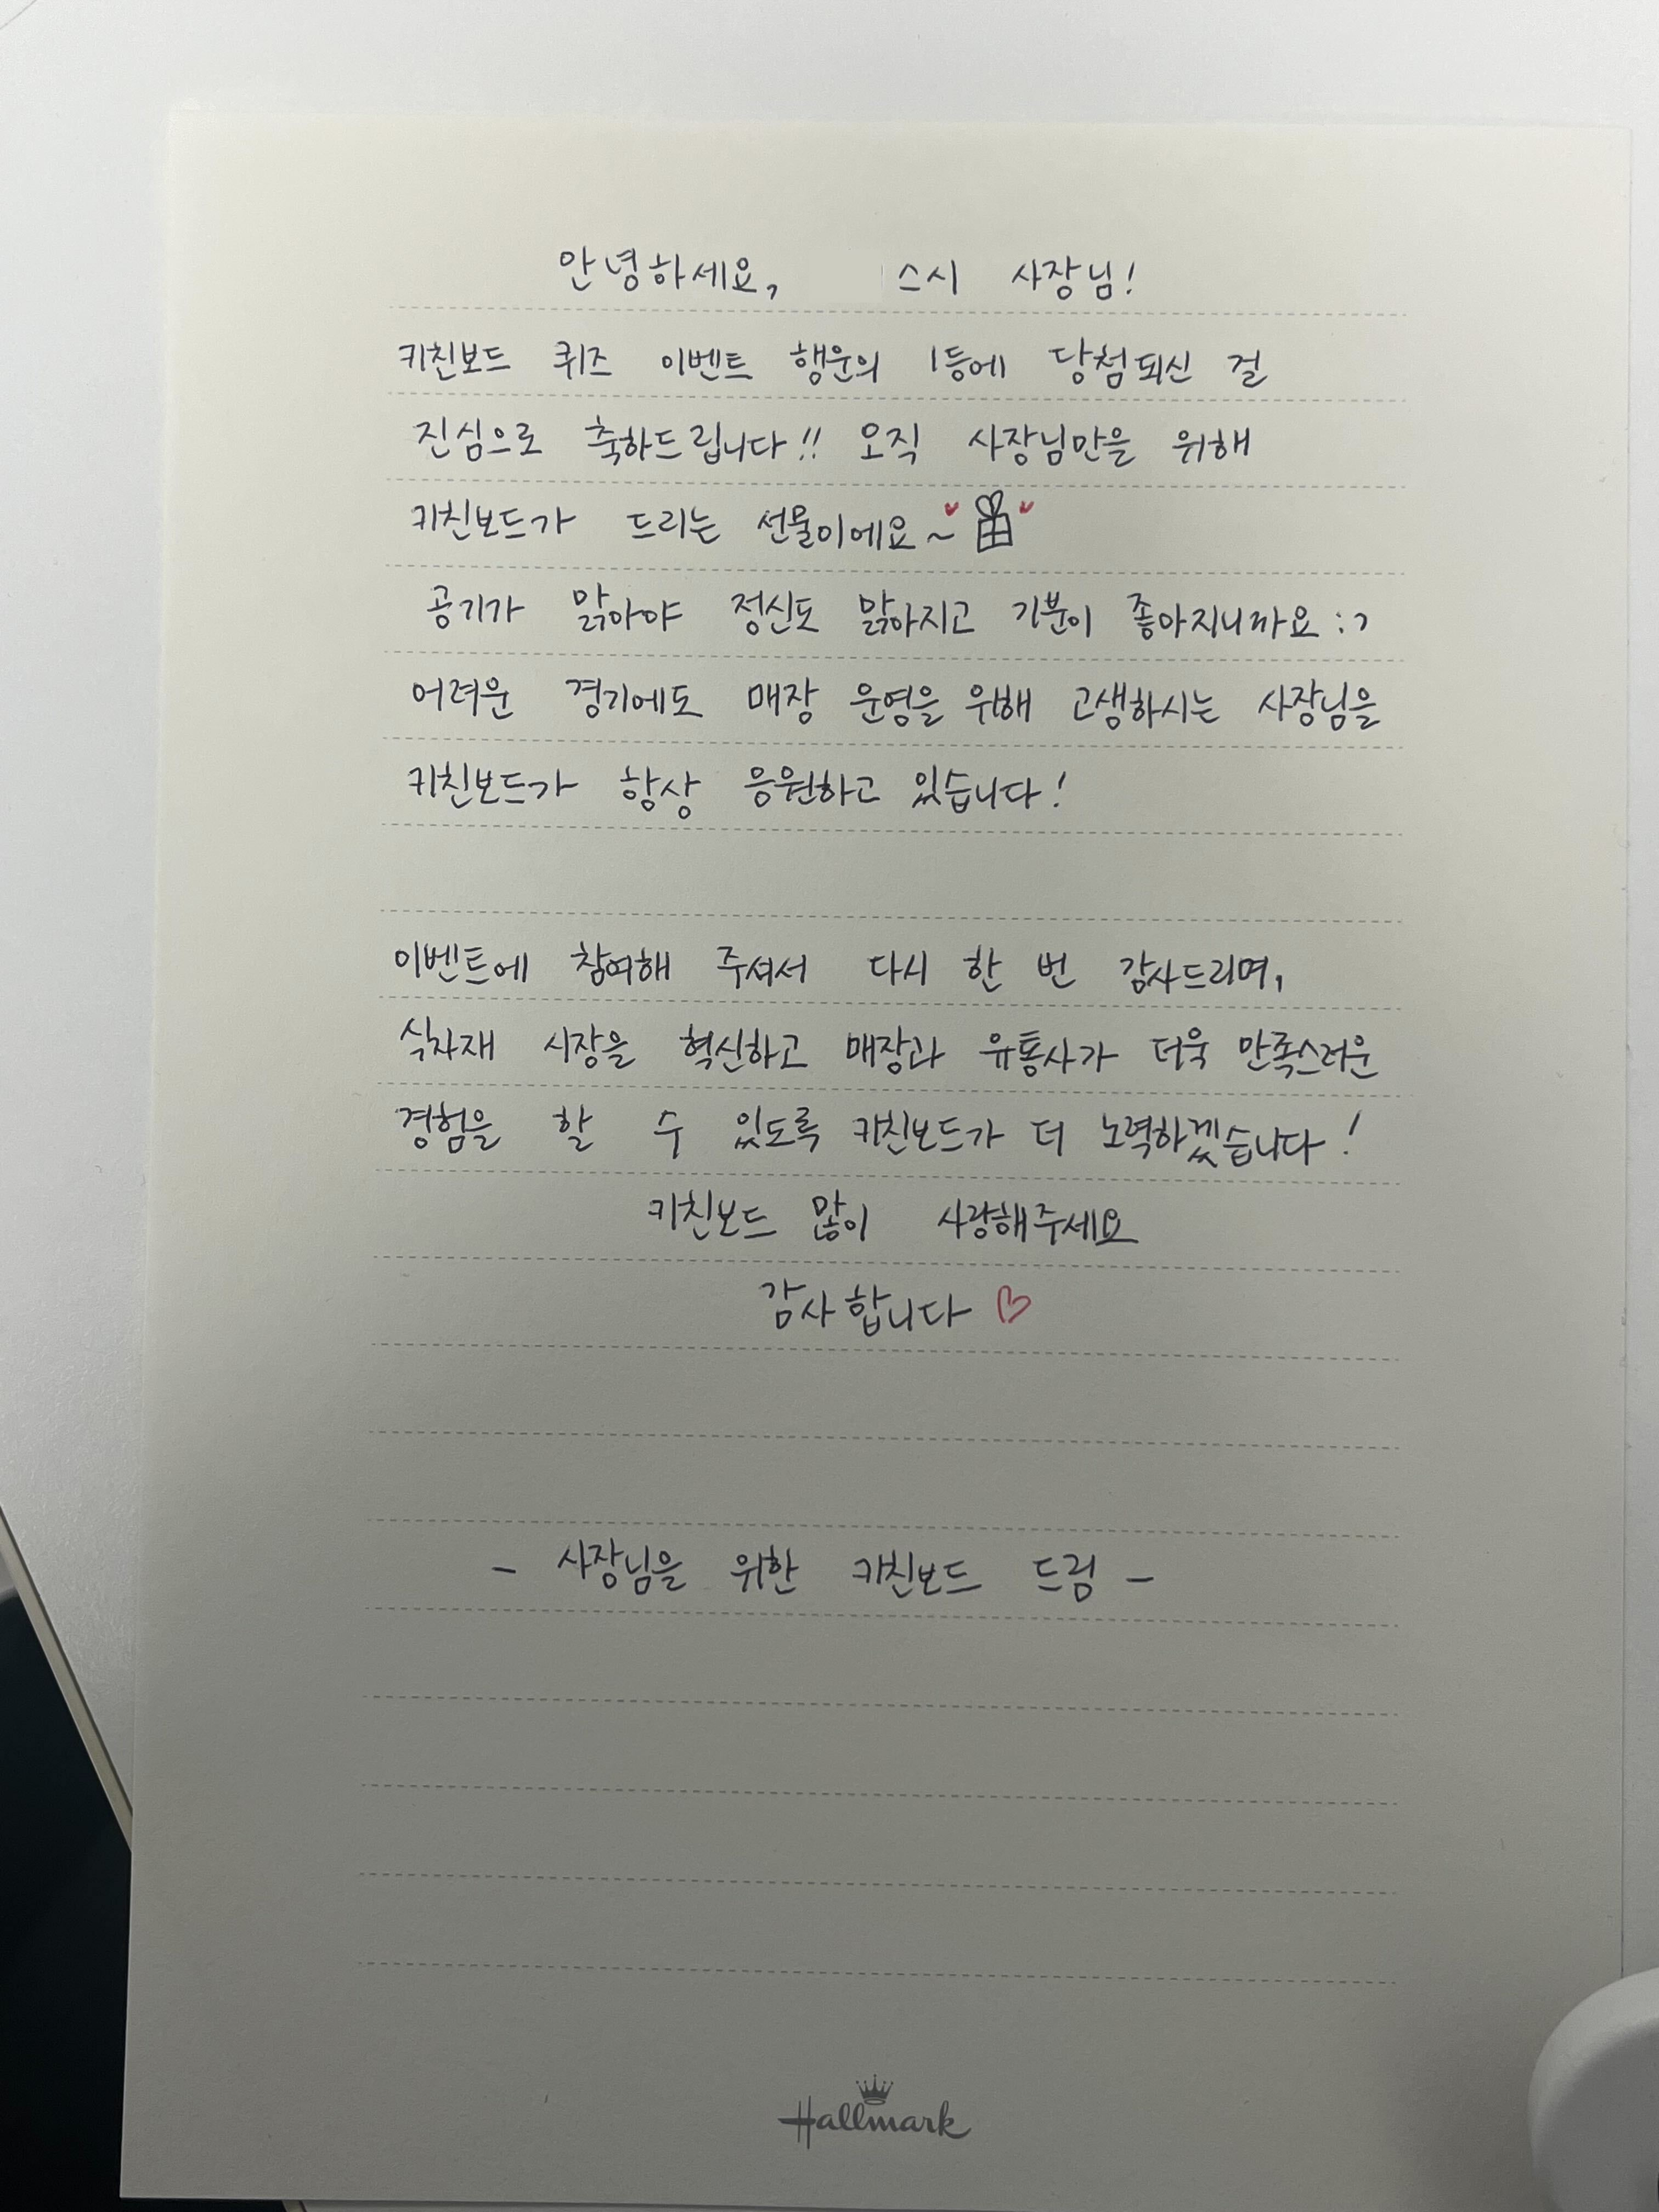 안녕하세요, 스시 사장님!
키친보드 퀴즈 이벤트 행운의 1등에 당첨되신 걸
진심으로 축하드립니다!! 오직 사장님만을 위해
키친보드가 드리는 선물이에요~
공기가 맑아야 정신도 맑아지고 기분이 좋아지니까요 :)
어려운 경기에도 매장 운영을 위해 고생하시는 사장님을
키친보드가 항상 응원하고 있습니다!
이벤트에 참여해 주셔서 다시 한 번 감사드리며,
식자재 시장을 혁신하고 매장과 유통사가 더욱 만족스러운
경험을 할 수 있도록 키친보드가 더 노력하겠습니다!
키친보드 많이 사랑해주세요
감사합니다 ♡
- 사장님을 위한 키친보드 드림 -
Hallmark